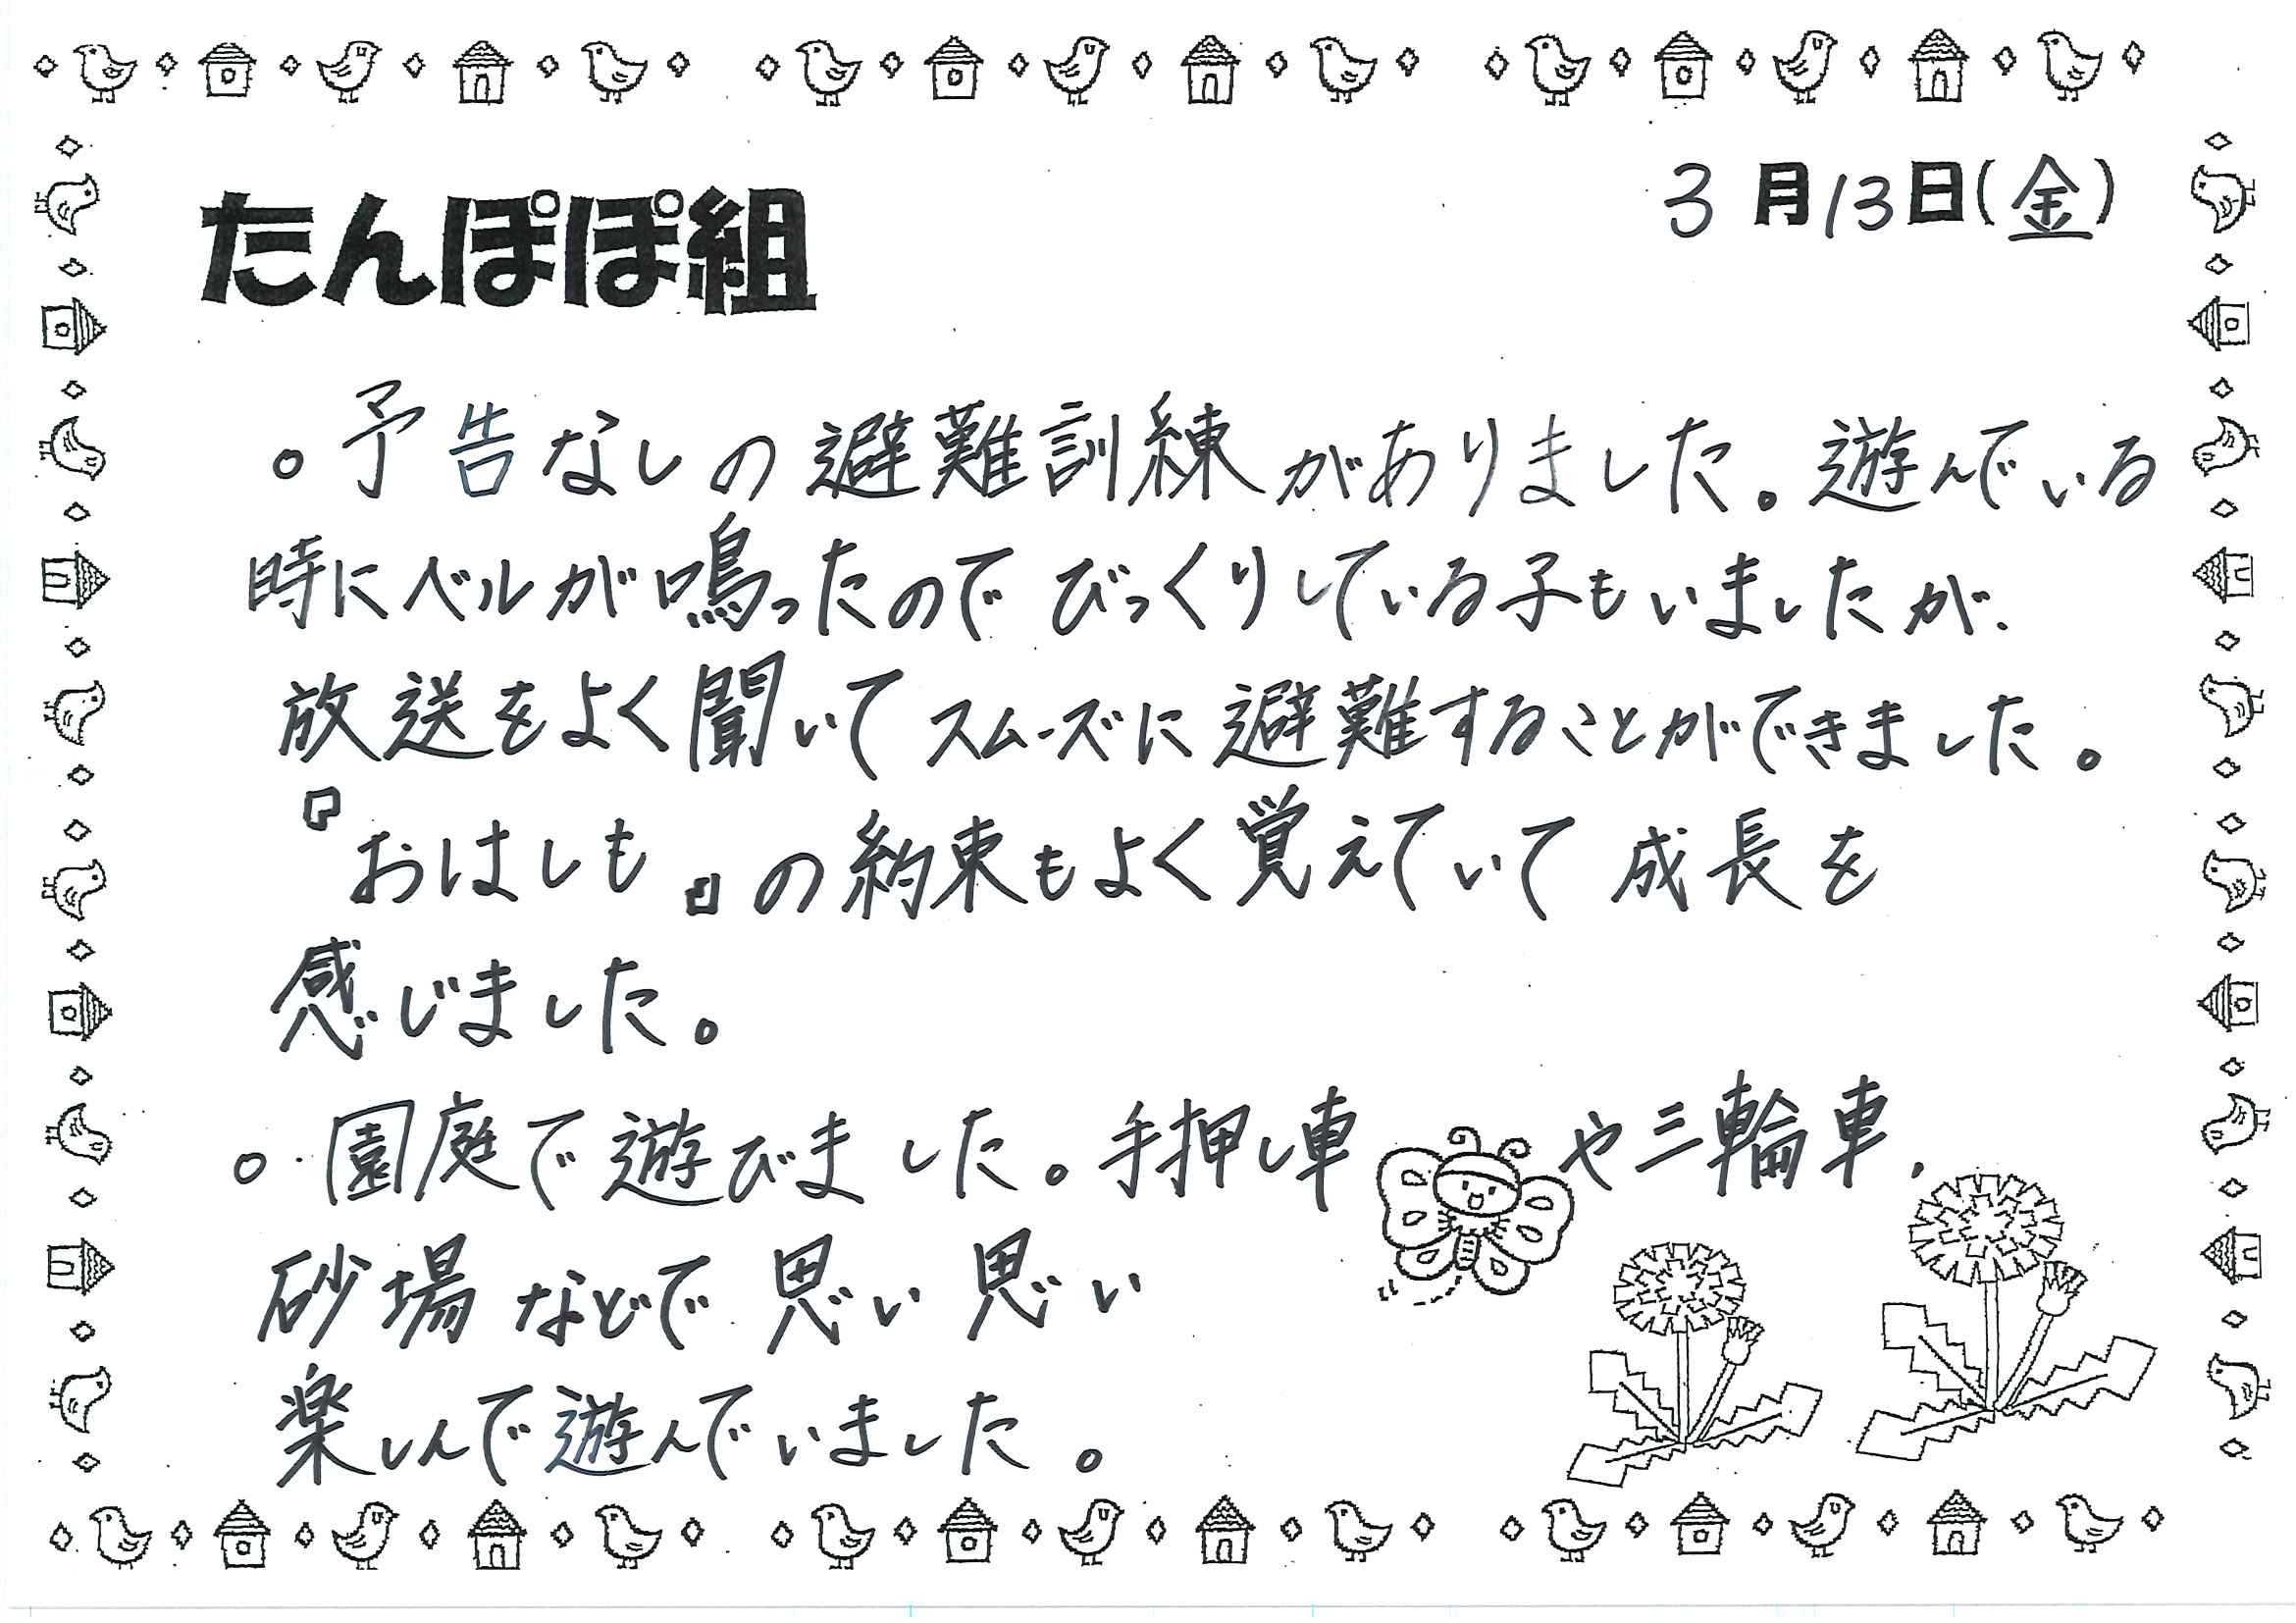 3月13日(金)
たんぽぽ組
○予告なしの避難訓練がありました。遊んでいる
時にベルが鳴ったのでびっくりしている子もいましたが、
放送をよく聞いてスムーズに避難することができました。
『おはしも』の約束もよく覚えていて成長を
感じました。
○園庭で遊びました。手押し車や三輪車、
砂場などで思い思い
楽しんで遊んでいました。